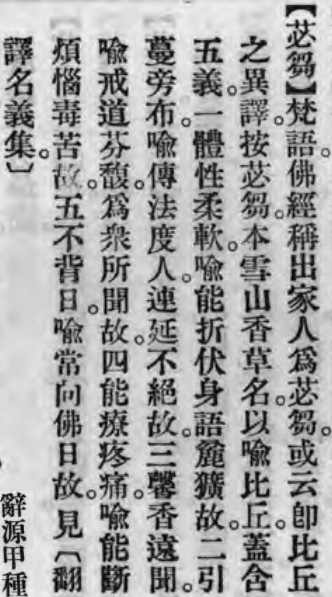 【苾芻】梵語。佛經稱出家人爲苾芻。或云卽比丘
之異譯。按苾芻。本雪山香草名。以喩比丘。蓋含
五義。一體性柔軟。喩能折伏身語麁獷故。二引
蔓旁布。喩傳法度人連延不絕故。三馨香遠聞。
喩戒道芬馥。爲衆所聞故。四能療疼痛。喩能斷
煩惱毒苦故。五不背日。喩常向佛日故。見〔翻
譯名義集。〕
辭源甲種